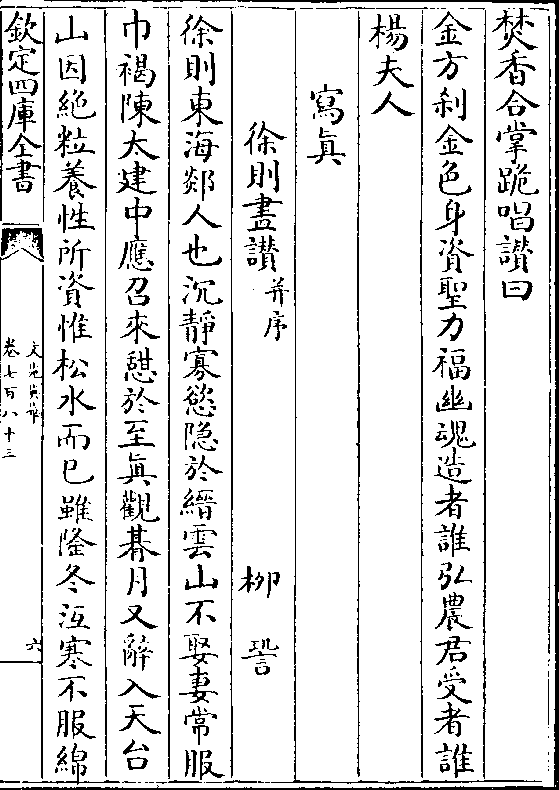 焚香合掌跪唱讃曰
金方刹金色身資聖力福幽魂造者誰弘農君受者誰
楊夫人
寫眞
徐則畫讃并序
柳䛒
徐則東海郯人也沉靜寡慾隐於縉雲山不娶妻常服
巾褐陳太建中應召來憇於至眞觀朞月又辭入天台
山因絶粒養性所資惟松水而已雖隆冬沍寒不服綿
欽定四庫全書
文苑英華
卷七百八十三
六